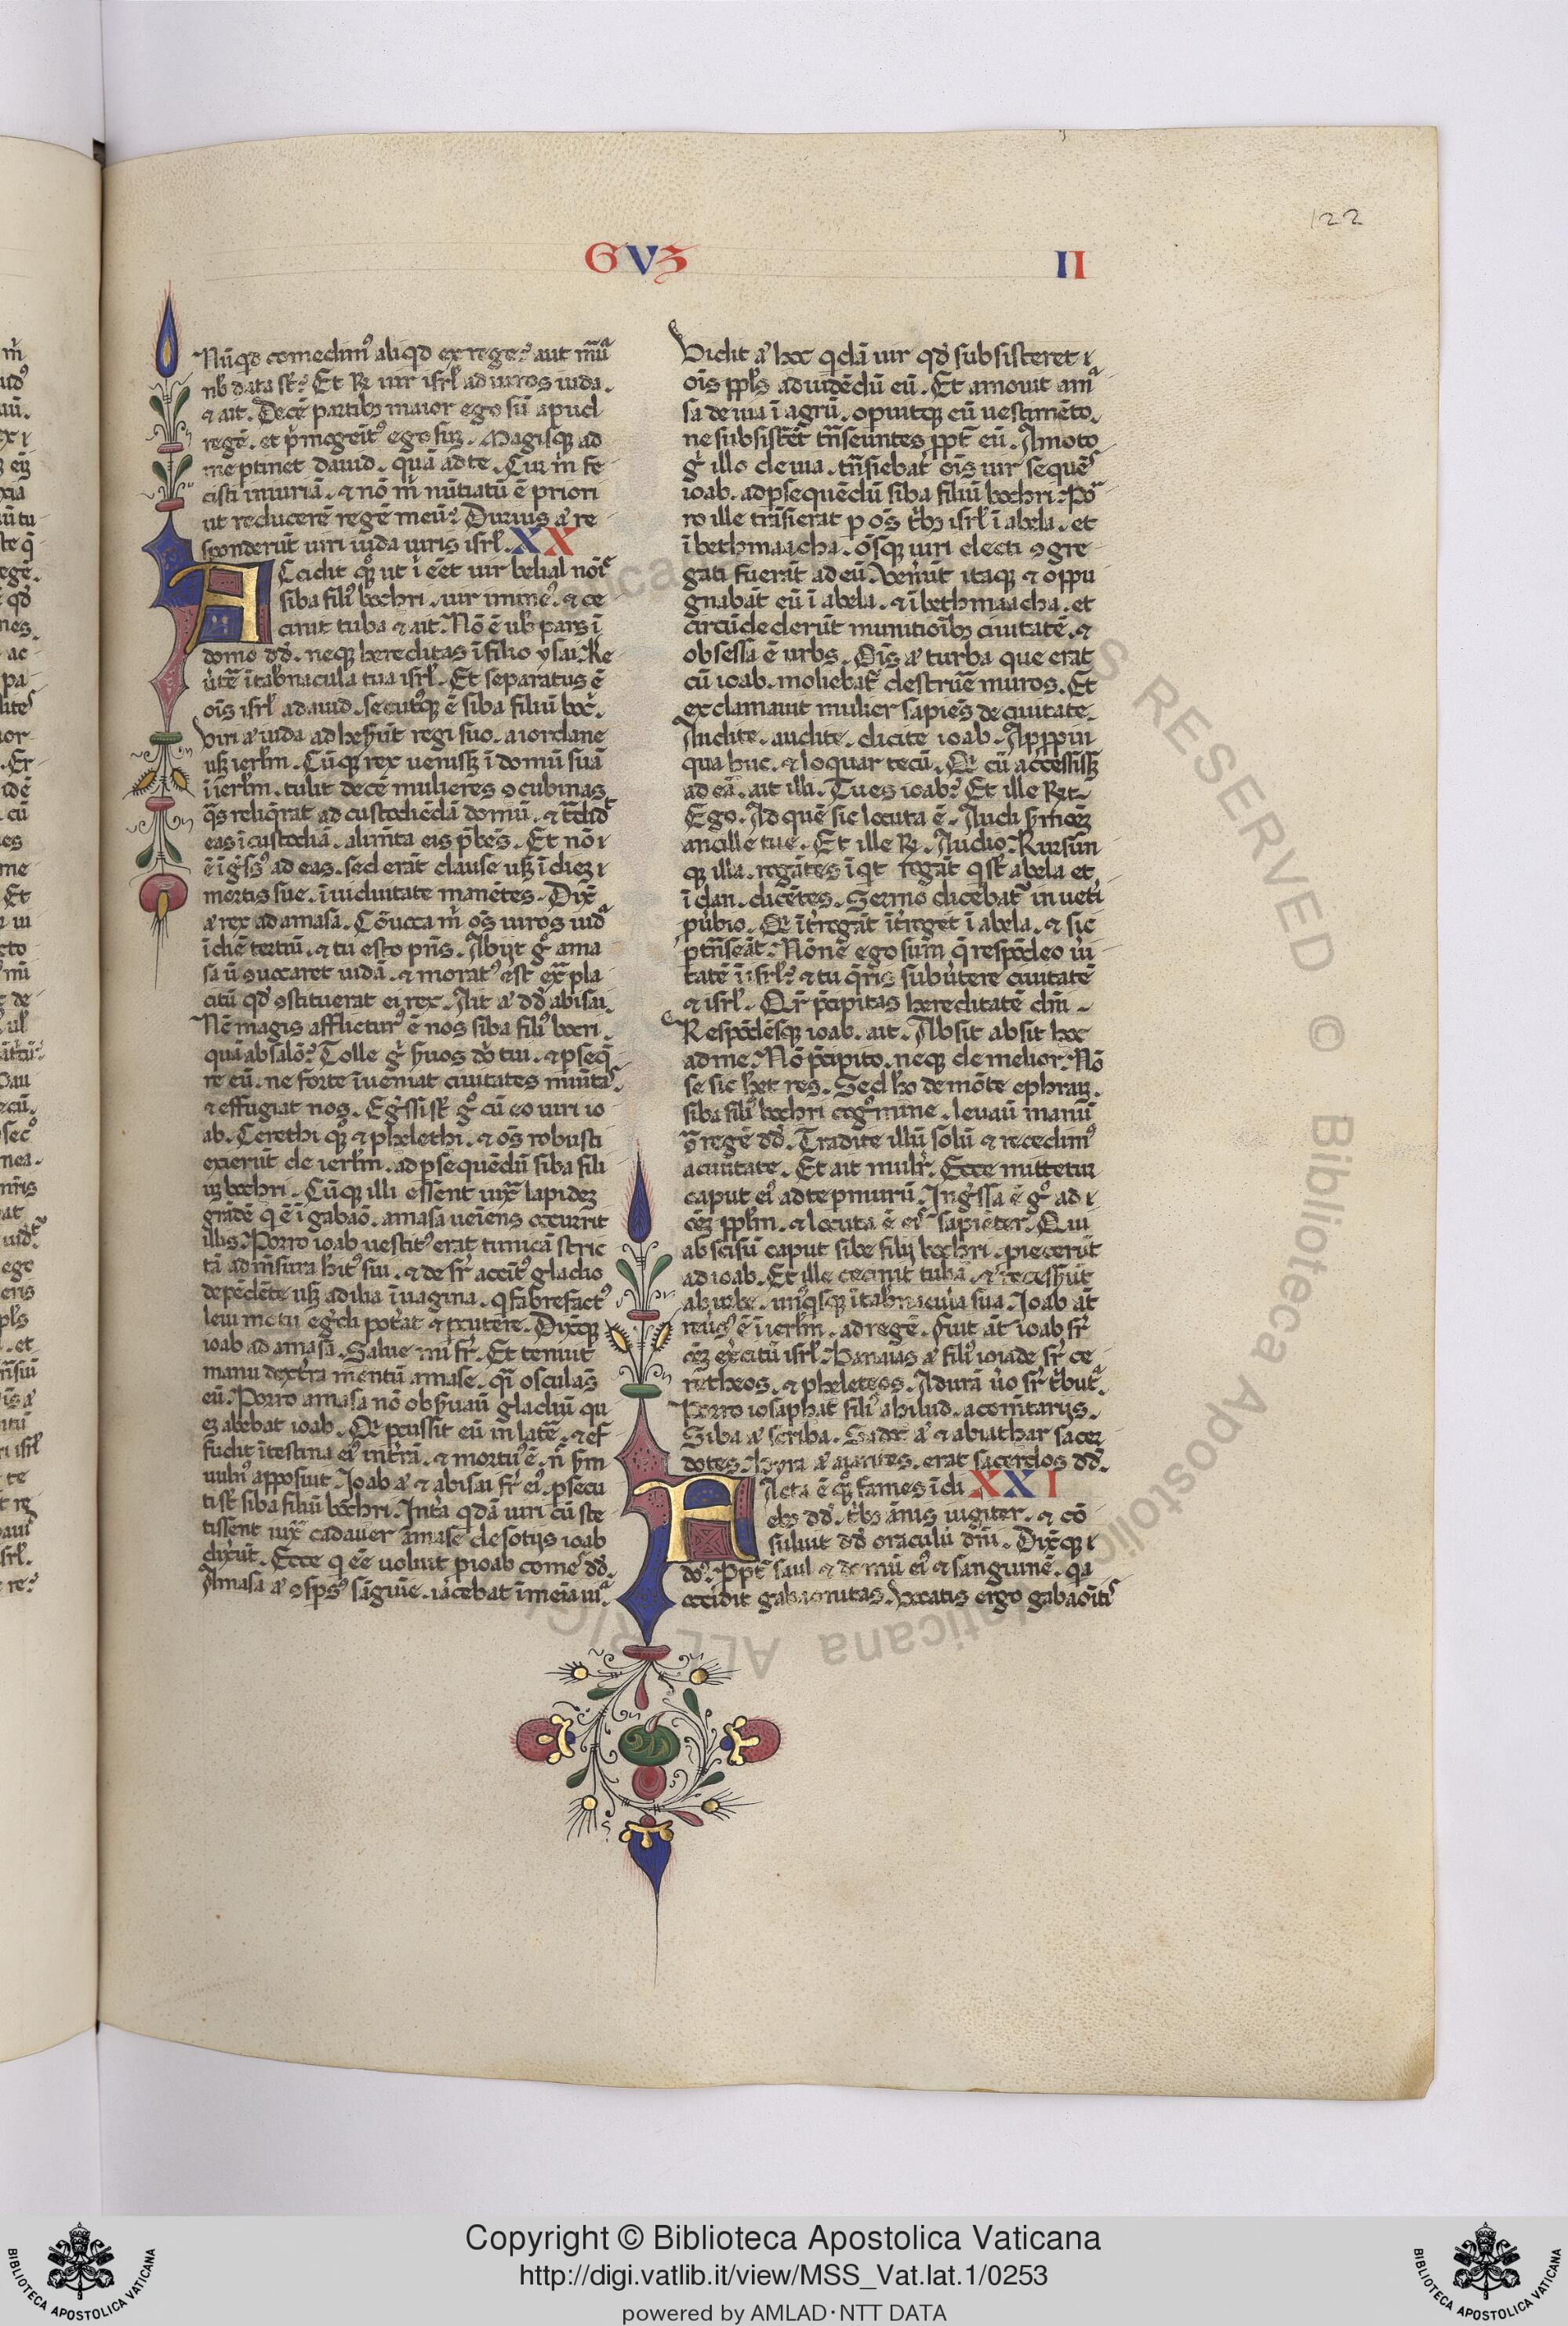 122
GVZ II
Nūqd comedim᷒ aliqd ex rege? aut mūa
nb̄ data st̄? Et R̄ uir isrl̄ ad uiros iuda.
⁊ ait. Decē partibȝ maior ego sū apud
regē. et p̄mogēit᷒ ego suȝ. Magisqȝ ad
me ptinet dauid. quā ad te. Cur m̄ fe
cisti iniuriā. ⁊ nō m̄ nūtiatū ē priori
ut reducerē regē meū? Durius a᷒ re
sponderūt uiri iuda uiris isrl̄. XX
ACcidit qȝ ut ī eēt uir belial noīe
siba fili᷒ bochri. uir imine᷒. ⁊ ce
cinit tuba ⁊ ait. Nō ē nb̄ pars ī
domo dd̄. neqȝ hereditas ī filio ysai. Re
ūtē ī tabnacula tua isrl̄. Et separatus ē
oīs isrl̄ a dauid. secut᷒qȝ ē siba filiū boc̄.
Viri a᷒ iuda adhesūt regi suo. a iordane
usqȝ ierlm̄. Cūqȝ rex uenissȝ ī domū suā
ī ierlm̄. tulit decē mulieres ꝯcubinas
q̄s reliq̄rat ad custodiēdā domū. ⁊ t̄did᷒
eas ī custodiā. alimēta eis p̄bēs. Et nō ē
ē īgs̄s᷒ ad eas. sed erāt clause usqȝ ī dieȝ
mortis sue. ī uiduitate manētes. Dix̄
a᷒ rex ad amasā. Cōuoca m̄ oēs uiros iud᷒
ī diē tertiū. ⁊ tu esto pn̄s. Abijt g᷒ ama
sa ū ꝯuocaret iudā. ⁊ morat᷒ est ext̄ pla
citū qd̄ ꝯstituerat ei rex. Ait a᷒ dd̄ abisai.
Nē magis afflictur᷒ ē nos siba fili᷒ bocri.
quā absalō? Tolle g᷒ suos dn̄i tui. ⁊ pseq̄
re eū. ne forte īueniat ciuitates munita᷒
⁊ effugiat nos. Egs̄si st̄ g᷒ cū eo uiri io
ab. Cerethi qȝ ⁊ phelethi. ⁊ oēs robusti
exierūt de ierlm̄. ad psequēdū siba fili
uȝ bochri. Cūqȝ illi essent iuxᷓ lapideȝ
grādē q ē ī gabaō. amasa ueiens occurrit
illis. Porro ioab uestit᷒ erat tunicā stric
tā ad mēsura hīt᷒ sui. ⁊ desr̄ accīt᷒ gladio
depēdēte usqȝ ad ilia ī uagina. q fabrefact᷒
leui motu egr̄di pot̄at ⁊ pcutere. Dixitqȝ
ioab ad amasā. Salue mi fr̄. Et tenuit
manu dext̄ra mentū amase. qi osculās
eū. Porro amasa nō obs̄uauit gladiū qu
eȝ habebat ioab. Qi pcussit eū in lat̄e. ⁊ ef
fudit ītestina ei᷒ in t̄rā. ⁊ mortu᷒ ē. n̄ sm̄
uuln᷒ apposuit. Ioab a᷒ ⁊ abisai fr̄ ei᷒. psecu
ti st̄ siba filiū bochri. Int̄a qdā uiri cū ste
tissent iuxᷓ cadauer amase de sotijs ioab
dixerūt. Ecce q eē uoluit p ioab come᷒ dd̄.
Amasa a᷒ ꝯsps᷒ sāguīe. iacebat ī meīa uia
Vidit a᷒ hoc qdā uir qd̄ subsisteret
oīs ppls̄ ad uidēdū eū. Et amouit ama
sa de uia ī agrū. opuitqȝ eū uestimēto.
ne subsistēt tn̄seuntes ppt̄ eū. Amoto
g᷒ illo de uia. tn̄siebat oīs uir sequēs
ioab. ad psequēdū siba filiū bochri. Po
ro ille trāsierat p oēs t̄bȝ isrl̄ ī abela. et
ī bethmaacha. oēsqȝ uiri electi ꝯgre
gati fuerāt ad eū. Veneūt itaqȝ ⁊ oppu
gnabāt eū ī abela. ⁊ ī bethmaacha. et
circūdederūt munitioībȝ ciuitatē. ⁊
obsessa ē urbs. Oīs a᷒ turba que erat
cū ioab. moliebat᷒ destruē muros. Et
exclamauit mulier sapiēs de ciuitate.
Audite. audite. dicite ioab. Appin
qua huc. ⁊ loquar tecū. Qi cū accessissȝ
ad eā. ait illi. Tu es ioab? Et ille R̄it.
Ego. Ad quē sic locuta ē. Audi sm̄oēȝ
ancille tue. Et ille R̄. Audio. Rursun
qȝ illa. rogātes īqt rogāt q st̄ abela et
ī dan. dicētes. Sermo dicebat᷒ in ueti
pūbio. Qi īt̄rogāt īt̄roget ī abela. ⁊ sic
ptn̄seāt. Nōnē ego sum q respōdeo ūi
tatē ī isrl̄? ⁊ tu q̄ris subūtere ciuitatē
⁊ isrl̄. Qr̄ p̄cipitas hereditatē dn̄i
Respōdēsqȝ ioab. ait. Absit absit hoc
a me. Nō p̄cipito. neqȝ demolior. Nō
se sic hēt res. Sed hō de mōte ephraiȝ.
siba fili᷒ bochri cog᷒mine. leuauī manū
ꝯ̄ regē dd̄. Tradite illū solū ⁊ recedim᷒
a ciuitate. Et ait mulr̄. Ecce mittetur
caput ei᷒ ad te p murū. Ingr̄ssa ē g᷒ ad
oēȝ pplm̄. ⁊ locuta ē eis sapiēter. Qui
abscisū caput sibe filij bochri. piecerūt
ad ioab. Et ille cecinit tubā. ⁊ recesserūt
ab urbe. un᷒qsqȝ ī tabnacula sua. Ioab at̄
reūs᷒ ē ī ierlm̄. ad regē. Fuit at̄ ioab sr̄
oēȝ exercitū isrl̄. Banaias a᷒ fili᷒ ioiade sr̄ ce
retheos. ⁊ pheleteos. Adurā ūo sr̄ t̄but᷒.
Porro iosaphat fili᷒ ahilud. a comētarijs.
Siba a᷒ scriba. Sadoc a᷒ ⁊ abiathar sacer
dotes. hyra a᷒ aiarites. erat sacerdos dd̄.
FActa ē qȝ fames ī di XXI
ebȝ dd̄. t̄bȝ ānis iugiter. ⁊ cō
suluit dd̄ oraculū dn̄i. Dixitqȝ
dn̄s. Ppt̄ saul ⁊ domū ei᷒ ⁊ sanguinē. qa
occidit gabaonitas. Vocatis ergo gabaōitis
Copyright © Biblioteca Apostolica Vaticana
http://digi.vatlib.it/view/MSS_Vat.lat.1/0253
powered by AMLAD·NTT DATA
BIBLIOTECA APOSTOLICA VATICANA
BIBLIOTECA APOSTOLICA VATICANA